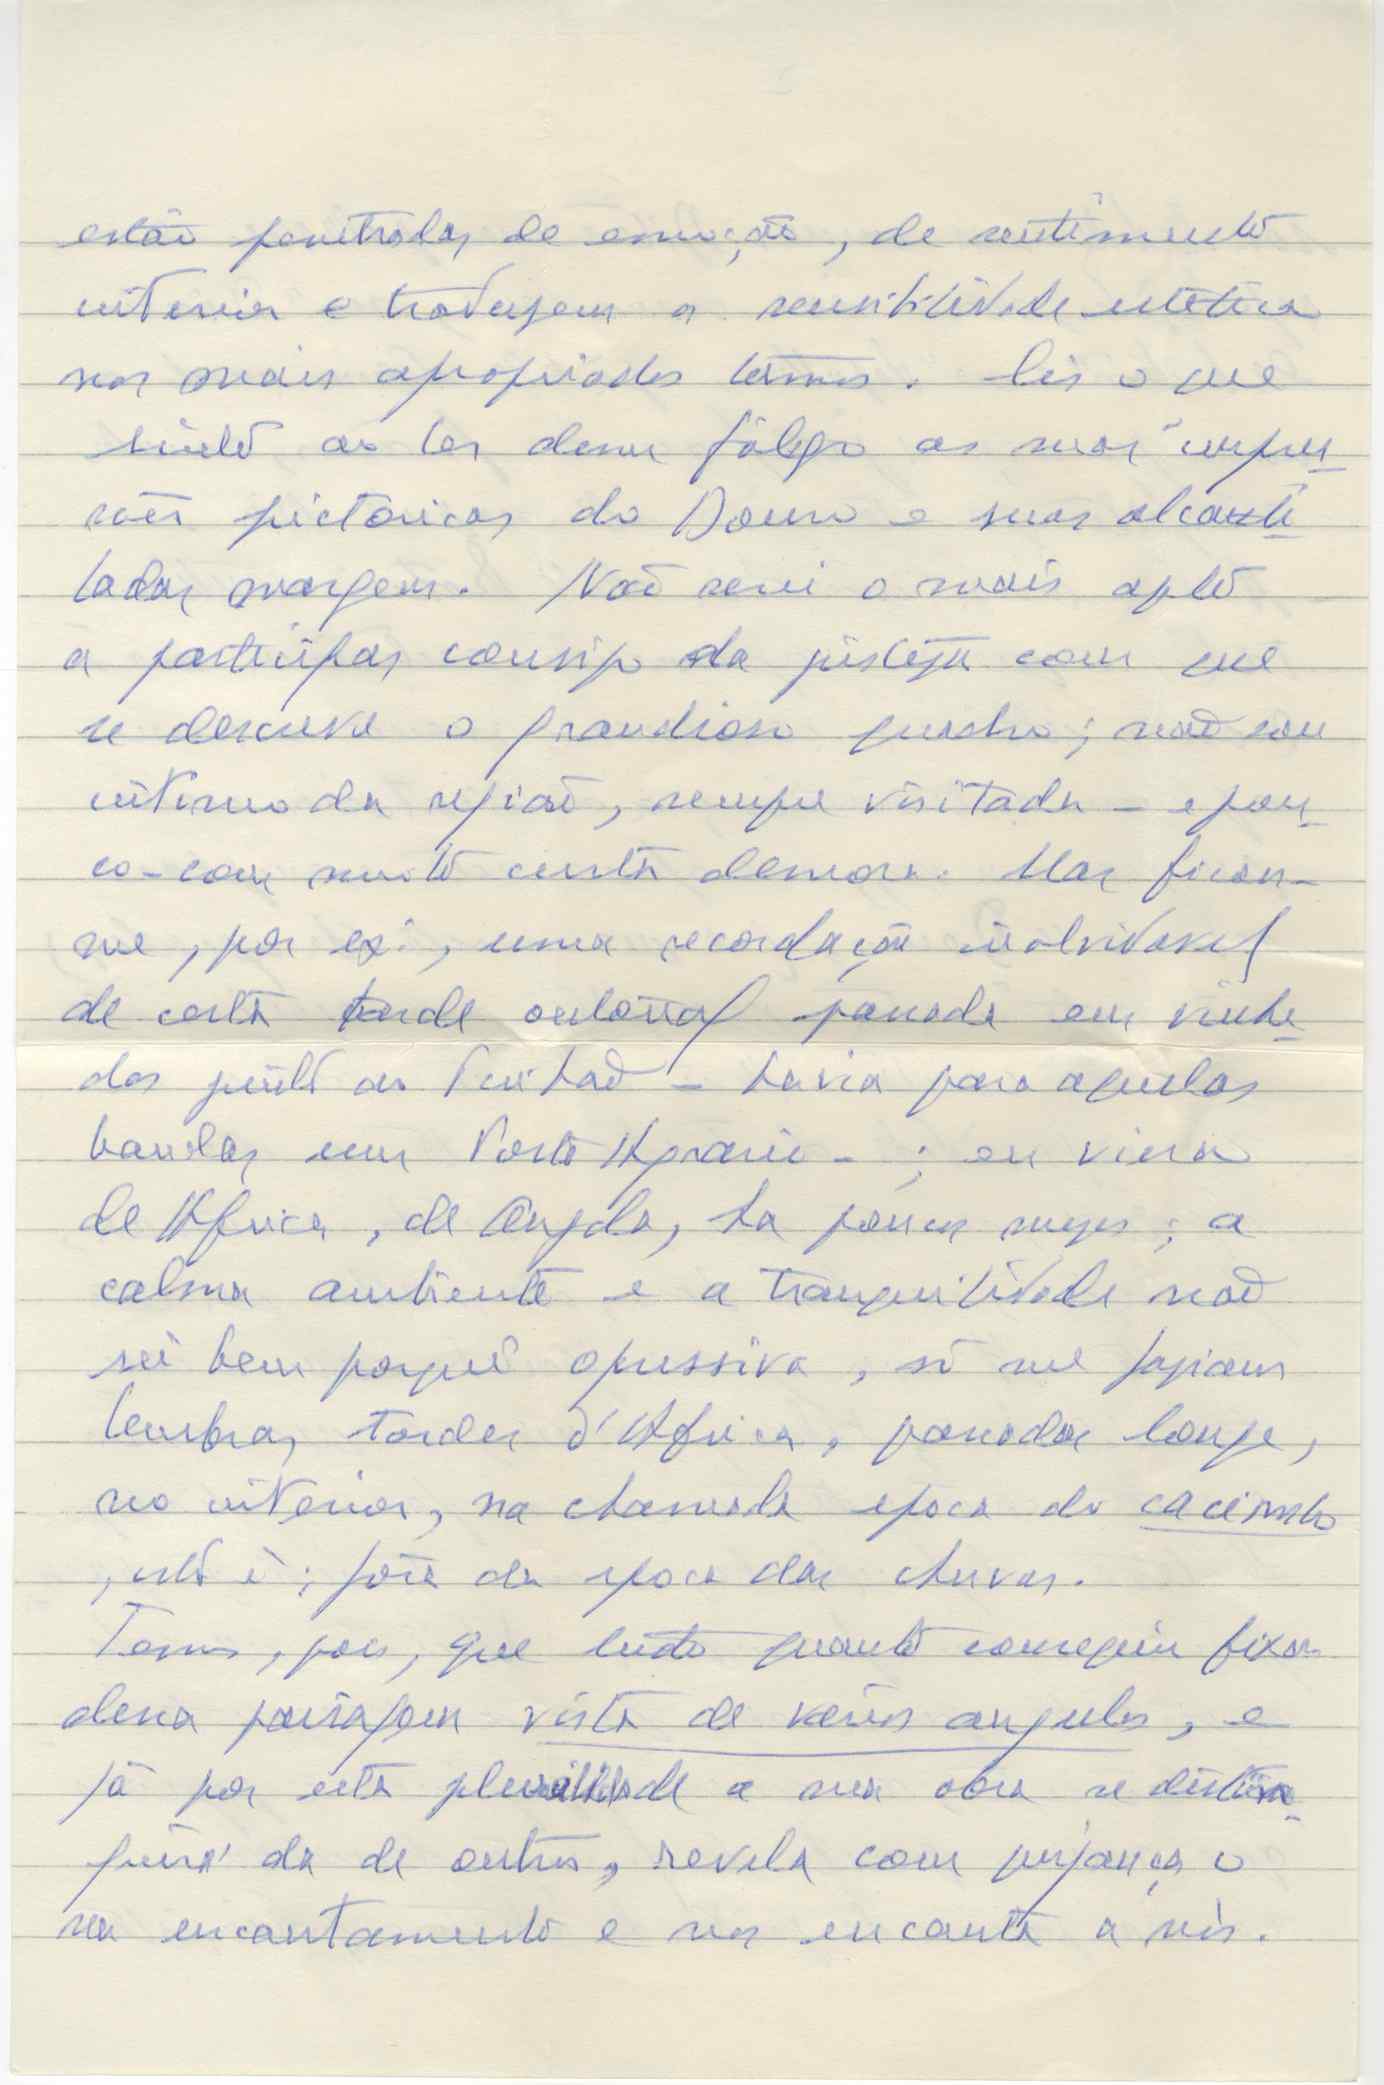 estão penetradas de emoção, de sentimento
interior e traduzem a sensibilidade estética
nos mais apropriados termos. Eis o que
sinto ao ler dum fôlego as suas impres-
sões pictóricas do Douro e suas alcanti-
ladas margens. Não serei o mais apto
a participar consigo da justeza com que
se descreve o grandioso quadro; não sou
íntimo da região, sempre visitada - e pou-
co - com muito curta demora. Mas ficou-
me, por ex:, uma recordação inolvidavel
de certa tarde outonal passada em vinhe-
dos junto ao Pinhão - havia para aquelas
bandas um Posto Agrario - ; eu viera
de Africa, de Angola, ha poucos meses; a
calma ambiente e a tranquilidade não
sei bem porquê opressiva, só me faziam
lembrar tardes d'Africa, passadas longe,
no interior, na chamada epoca do cacimbo
, isto é; fóra da epoca das chuvas.
Temos, pois, que tudo quanto conseguiu fixar
dessa paisagem vista de vários angulos, e
já por esta pluralidade a sua obra se distin-
guirá da de outros, revela com pujança o
seu encantamento e nos encanta a nós.